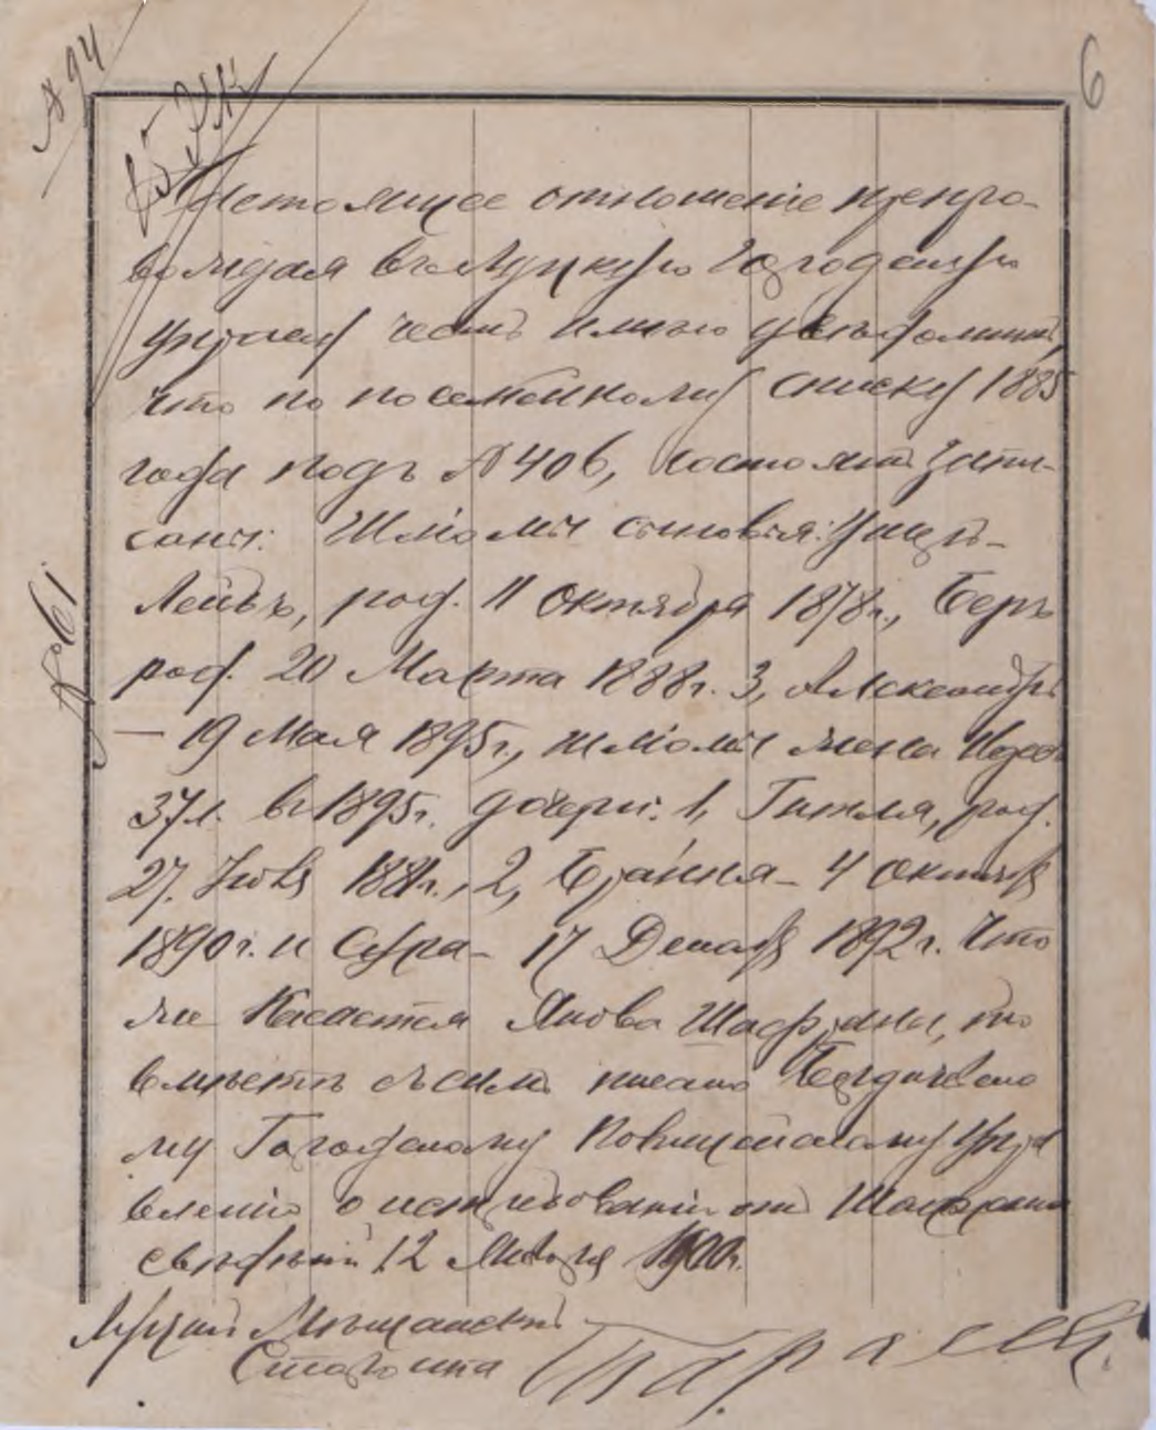 № 94
6
Настоящее отношеніе препро-
вождая въ Луцкую Городскую
Управу честь имѣю увѣдомить,
что по посемейному списку 1885
года подъ № 406, состоятъ запи-
саны: Шліомы сыновья:
Лейбъ, род. 11 Октября 1878 г., Беръ
род. 20 Марта 1888 г. 3, Александръ
— 19 Мая 1895 г., Шліомы жена
37 л. въ 1895 г. дочери: 1, Гитля, род.
27. 1881 г., 2, Брайна - 4 Октяб
1890 г. и Сура - 17 Декаб 1892 г. Что
же касается Якова Шафрана, то
вмѣстѣ съ симъ писано Бердичевско
му Городскому Полицейскому Упра
вленію о истребованіи отъ Шафрана
свѣдѣній 12 Января 1900 г.
Луцкій Мѣщанскій
Староста